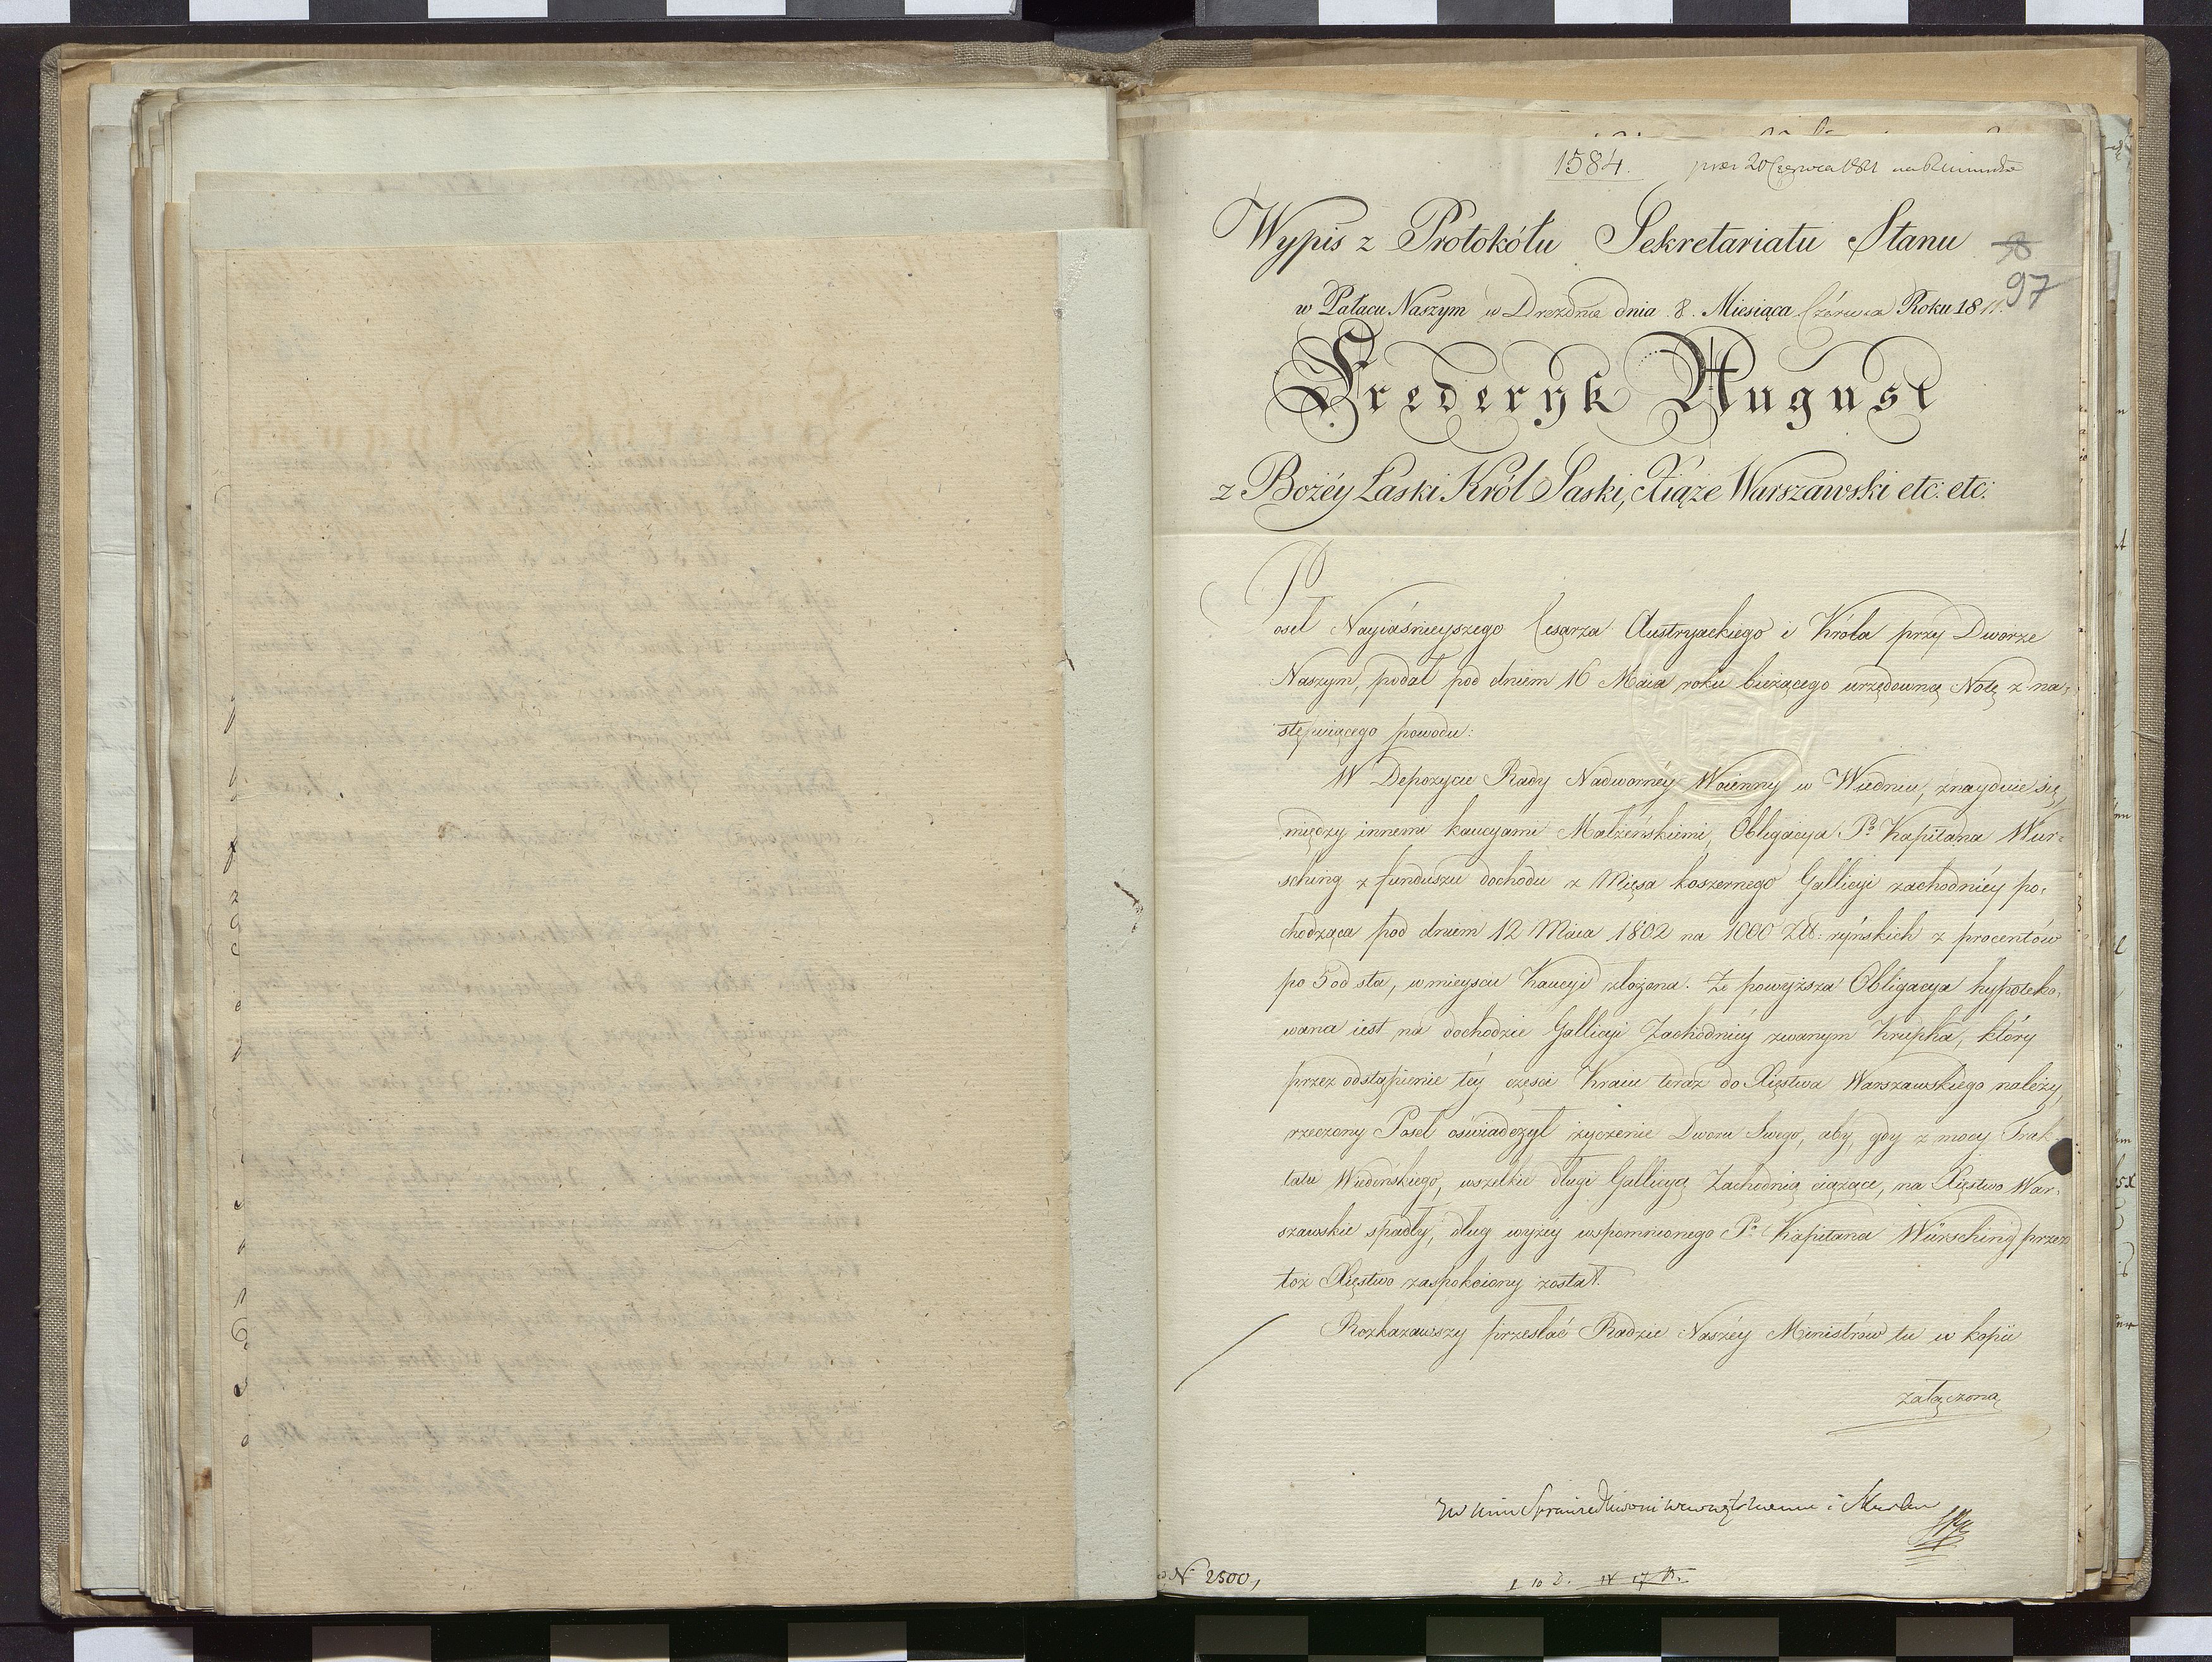 1584. 20 Czerwca 1811
Wypis z Protokółu Sekretariatu Stanu
97
w Pałacu Naszym w Dreźnie dnia 8. Miesiąca Czérwca Roku 1811.
Frederyk August
z Bożéy Łaski Król Saski, Xiąże Warszawski etc: etc:
Poseł Nayiaśnieyszego Cesarza Austryackiego i Króla przy Dworze
Naszym, podał pod dniem 16 Maia roku bieżącego urzędowną Notę z na,
stępuiącego powodu:
W Depozycie Rady Nadwornéy Woienny w Wiedniu, znayduie się,
między innemi kaucyami Małżeńskiemi, Obligacya Pa Kapitana Wür=
sching z funduszu dochodu z Mięsa koszernego Gallicyi zachodniéy po,
chodząca pod dniem 12 Maia 1802 na 1000 Złt: ryńskich z procentów
po 5 od sta, w mieyscu Kaucyi złożona. Że powyższa Obligacya hypoteko,
wana iest na dochodzie Gallicyi Zachodniéy zwanym Krupka, który
przez odstąpienie téy części Kraiu teraz do Xięstwa Warszawskiego należy,
rzeczony Poseł oświadczył życzenie Dworu Swego, aby, gdy z mocy Trak-
tatu Wiedeńskiego, wszelkie długi Gallicyą Zachodnią ciążące, na Xięstwo War,
szawskie spadły, dług wyżéy wspomnionego Pa Kapitana Würsching przez
toż Xięstwo zaspokoiony został.
Rozkazawszy przesłać Radzie Naszéy Ministrów tu w kopii
załączoną
i Skarbu
N 2500,